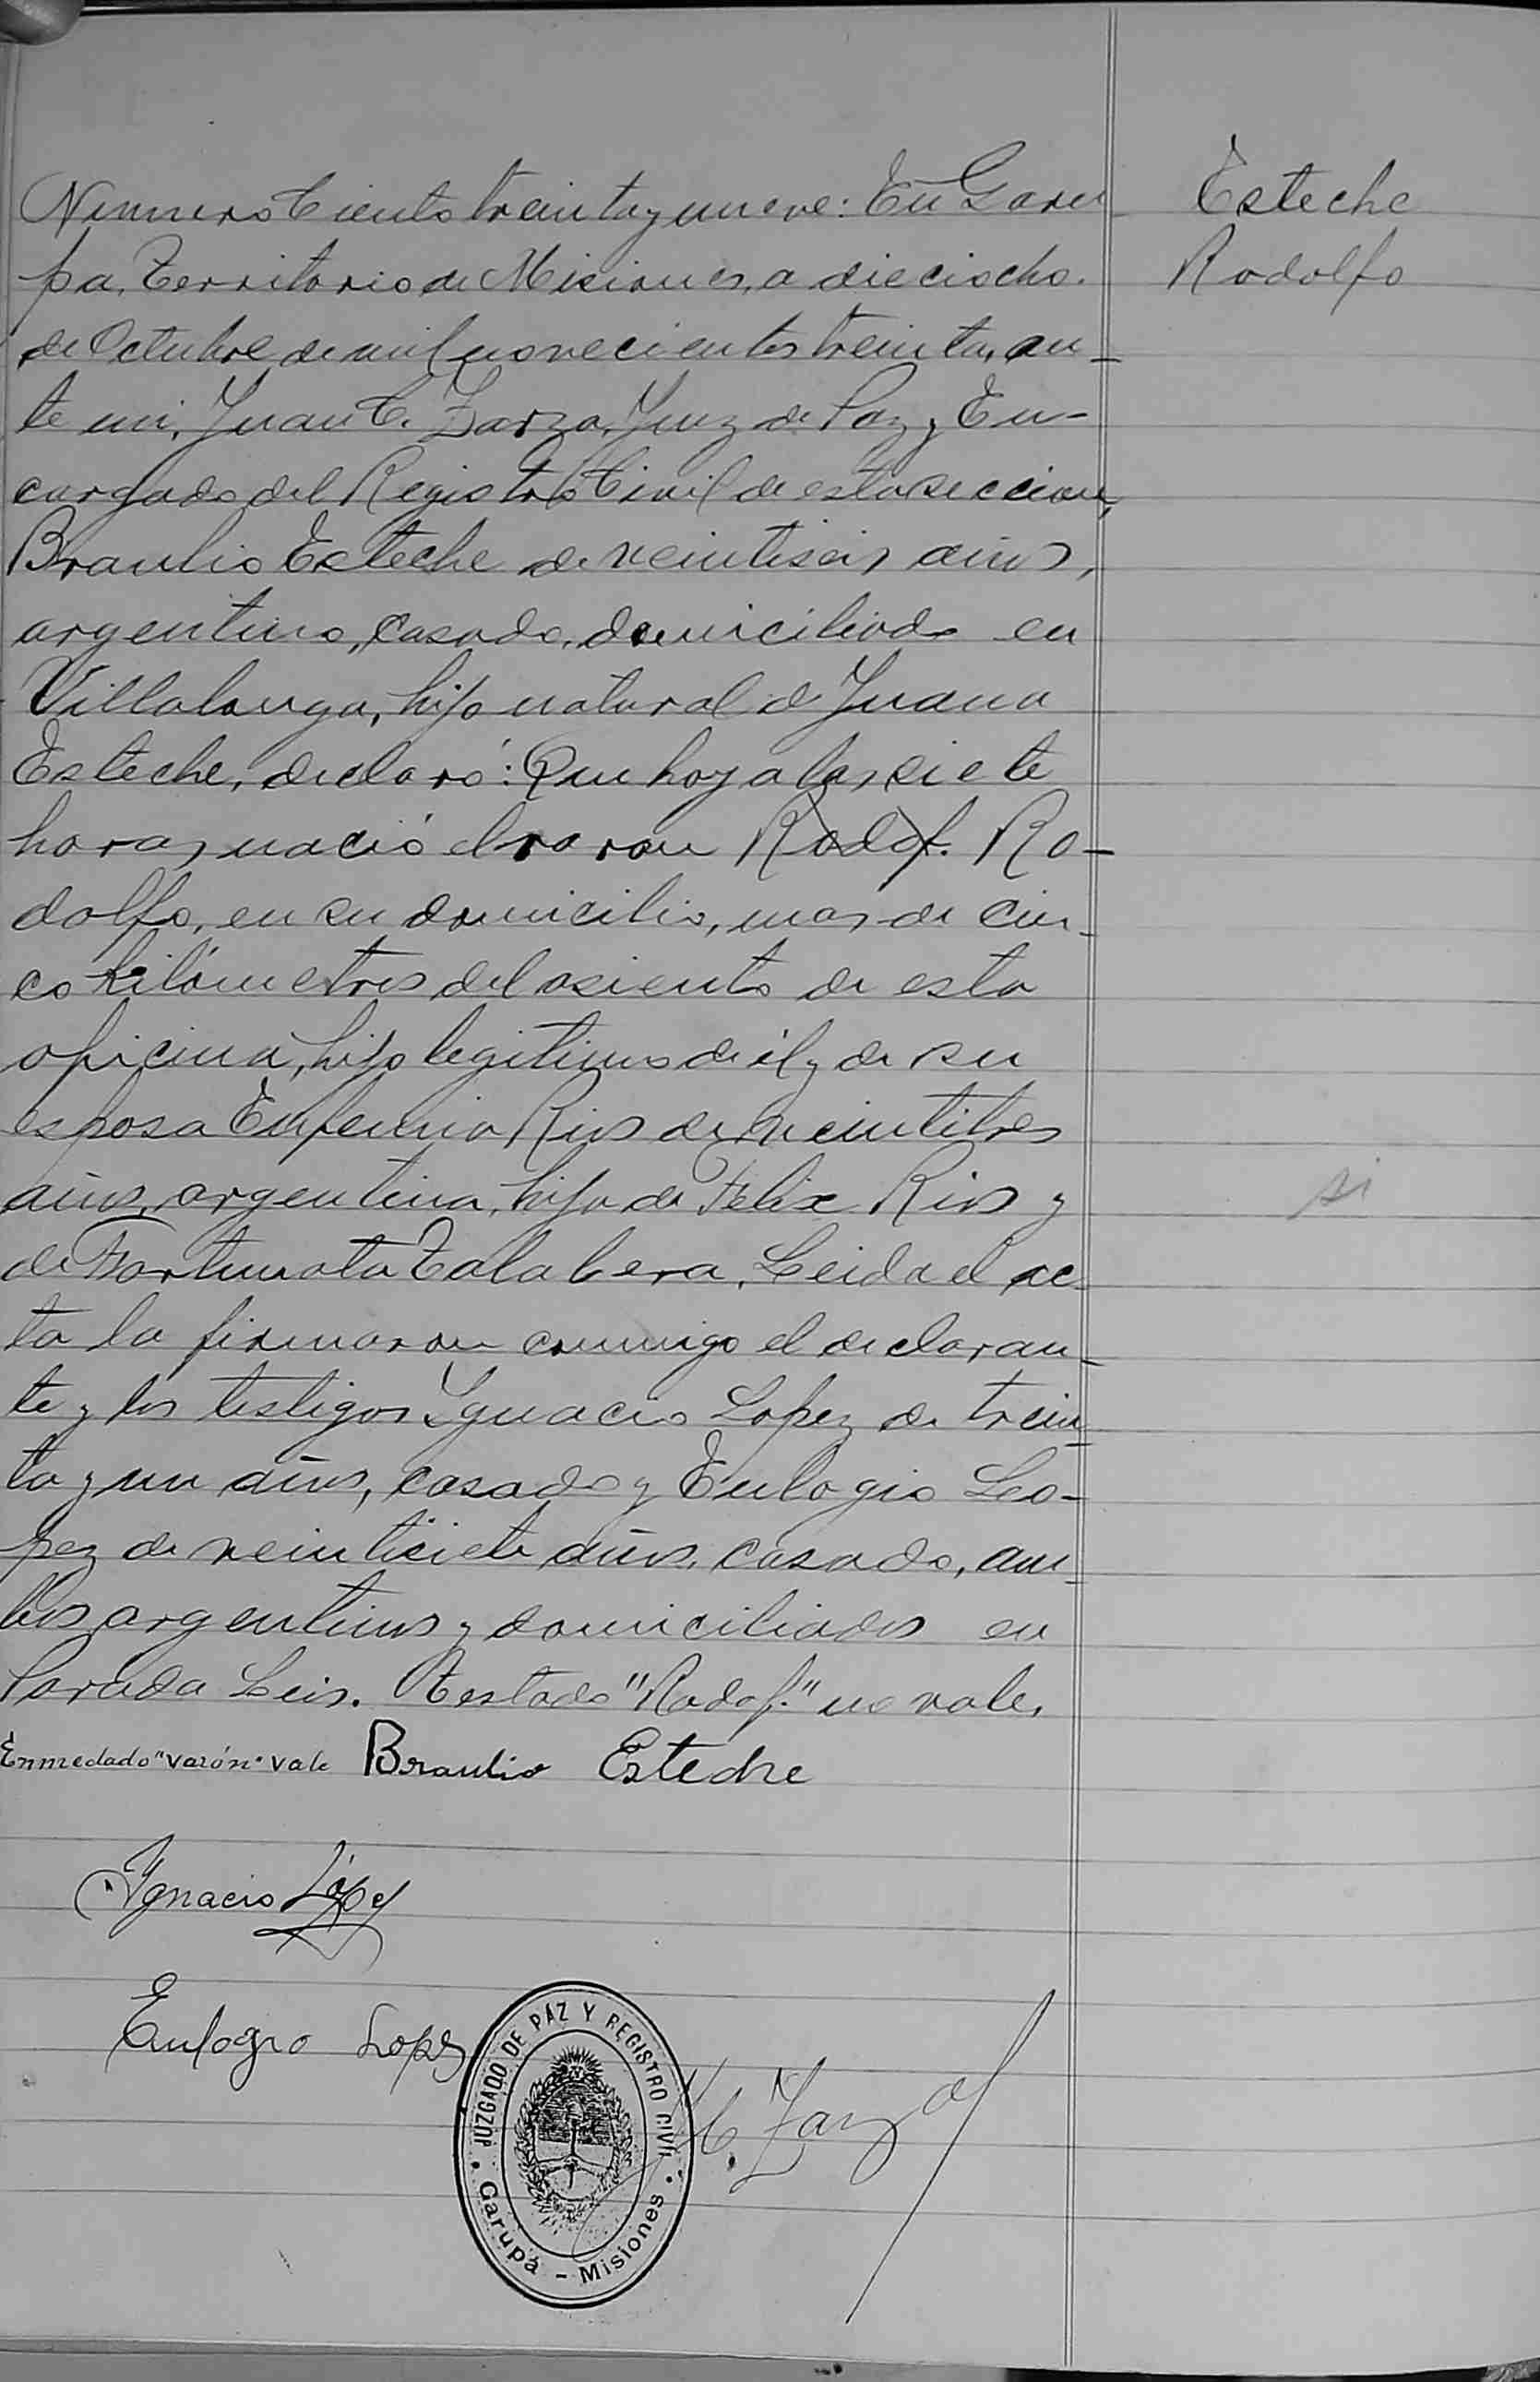 Esteche
Rodolfo
Numero Ciento treinta y nueve: En Garu
pa, Territorio de Misiones, a dieciocho
de Octubre de mil novecientos treinta, an-
te mi, Juan C. Zarza, Juez de Paz y En-
cargado del Registro Civil de esta seccion,
Braulio Esteche de veintiseis años,
argentino, casado, domiciliado en
Villalonga, hijo natural de Juana
Esteche, declaró: Que hoy a las siete
horas nació el varon Rodof. Ro-
dolfo, en su domicilio, mas de cin-
co kilómetros del asiento de esta
oficina, hijo legitimo de él y de su
esposa Eufemia Rios de veintitres
años, argentina, hija de Felix Rios y
de Fortunata Talabera. Leida el ac-
ta la firmaron conmigo el declaran-
te y los testigos Ygnacio Lopez de trein-
ta y un años, casado y Eulogio Lo-
pez de veintisiete años, casado, am-
bos argentinos y domiciliados en
Parada Leis. Testado "Rodof." no vale.
Enmedado "varón" vale Braulio Esteche
Ygnacio López
Eulogio Lopez
JUZGADO DE PAZ Y REGISTRO CIVIL
Garupá - Misiones
C. Zarza
si